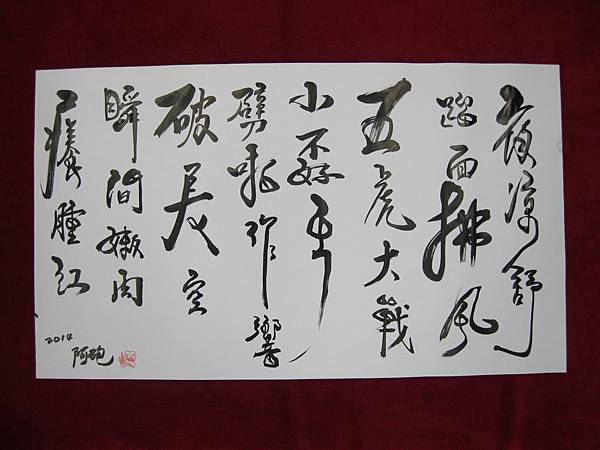 夜涼舒
跑面拂風
五虎大戰
小孬手
劈啪作響
破長空
瞬間嫩肉
癢腫紅
2014
阿砲